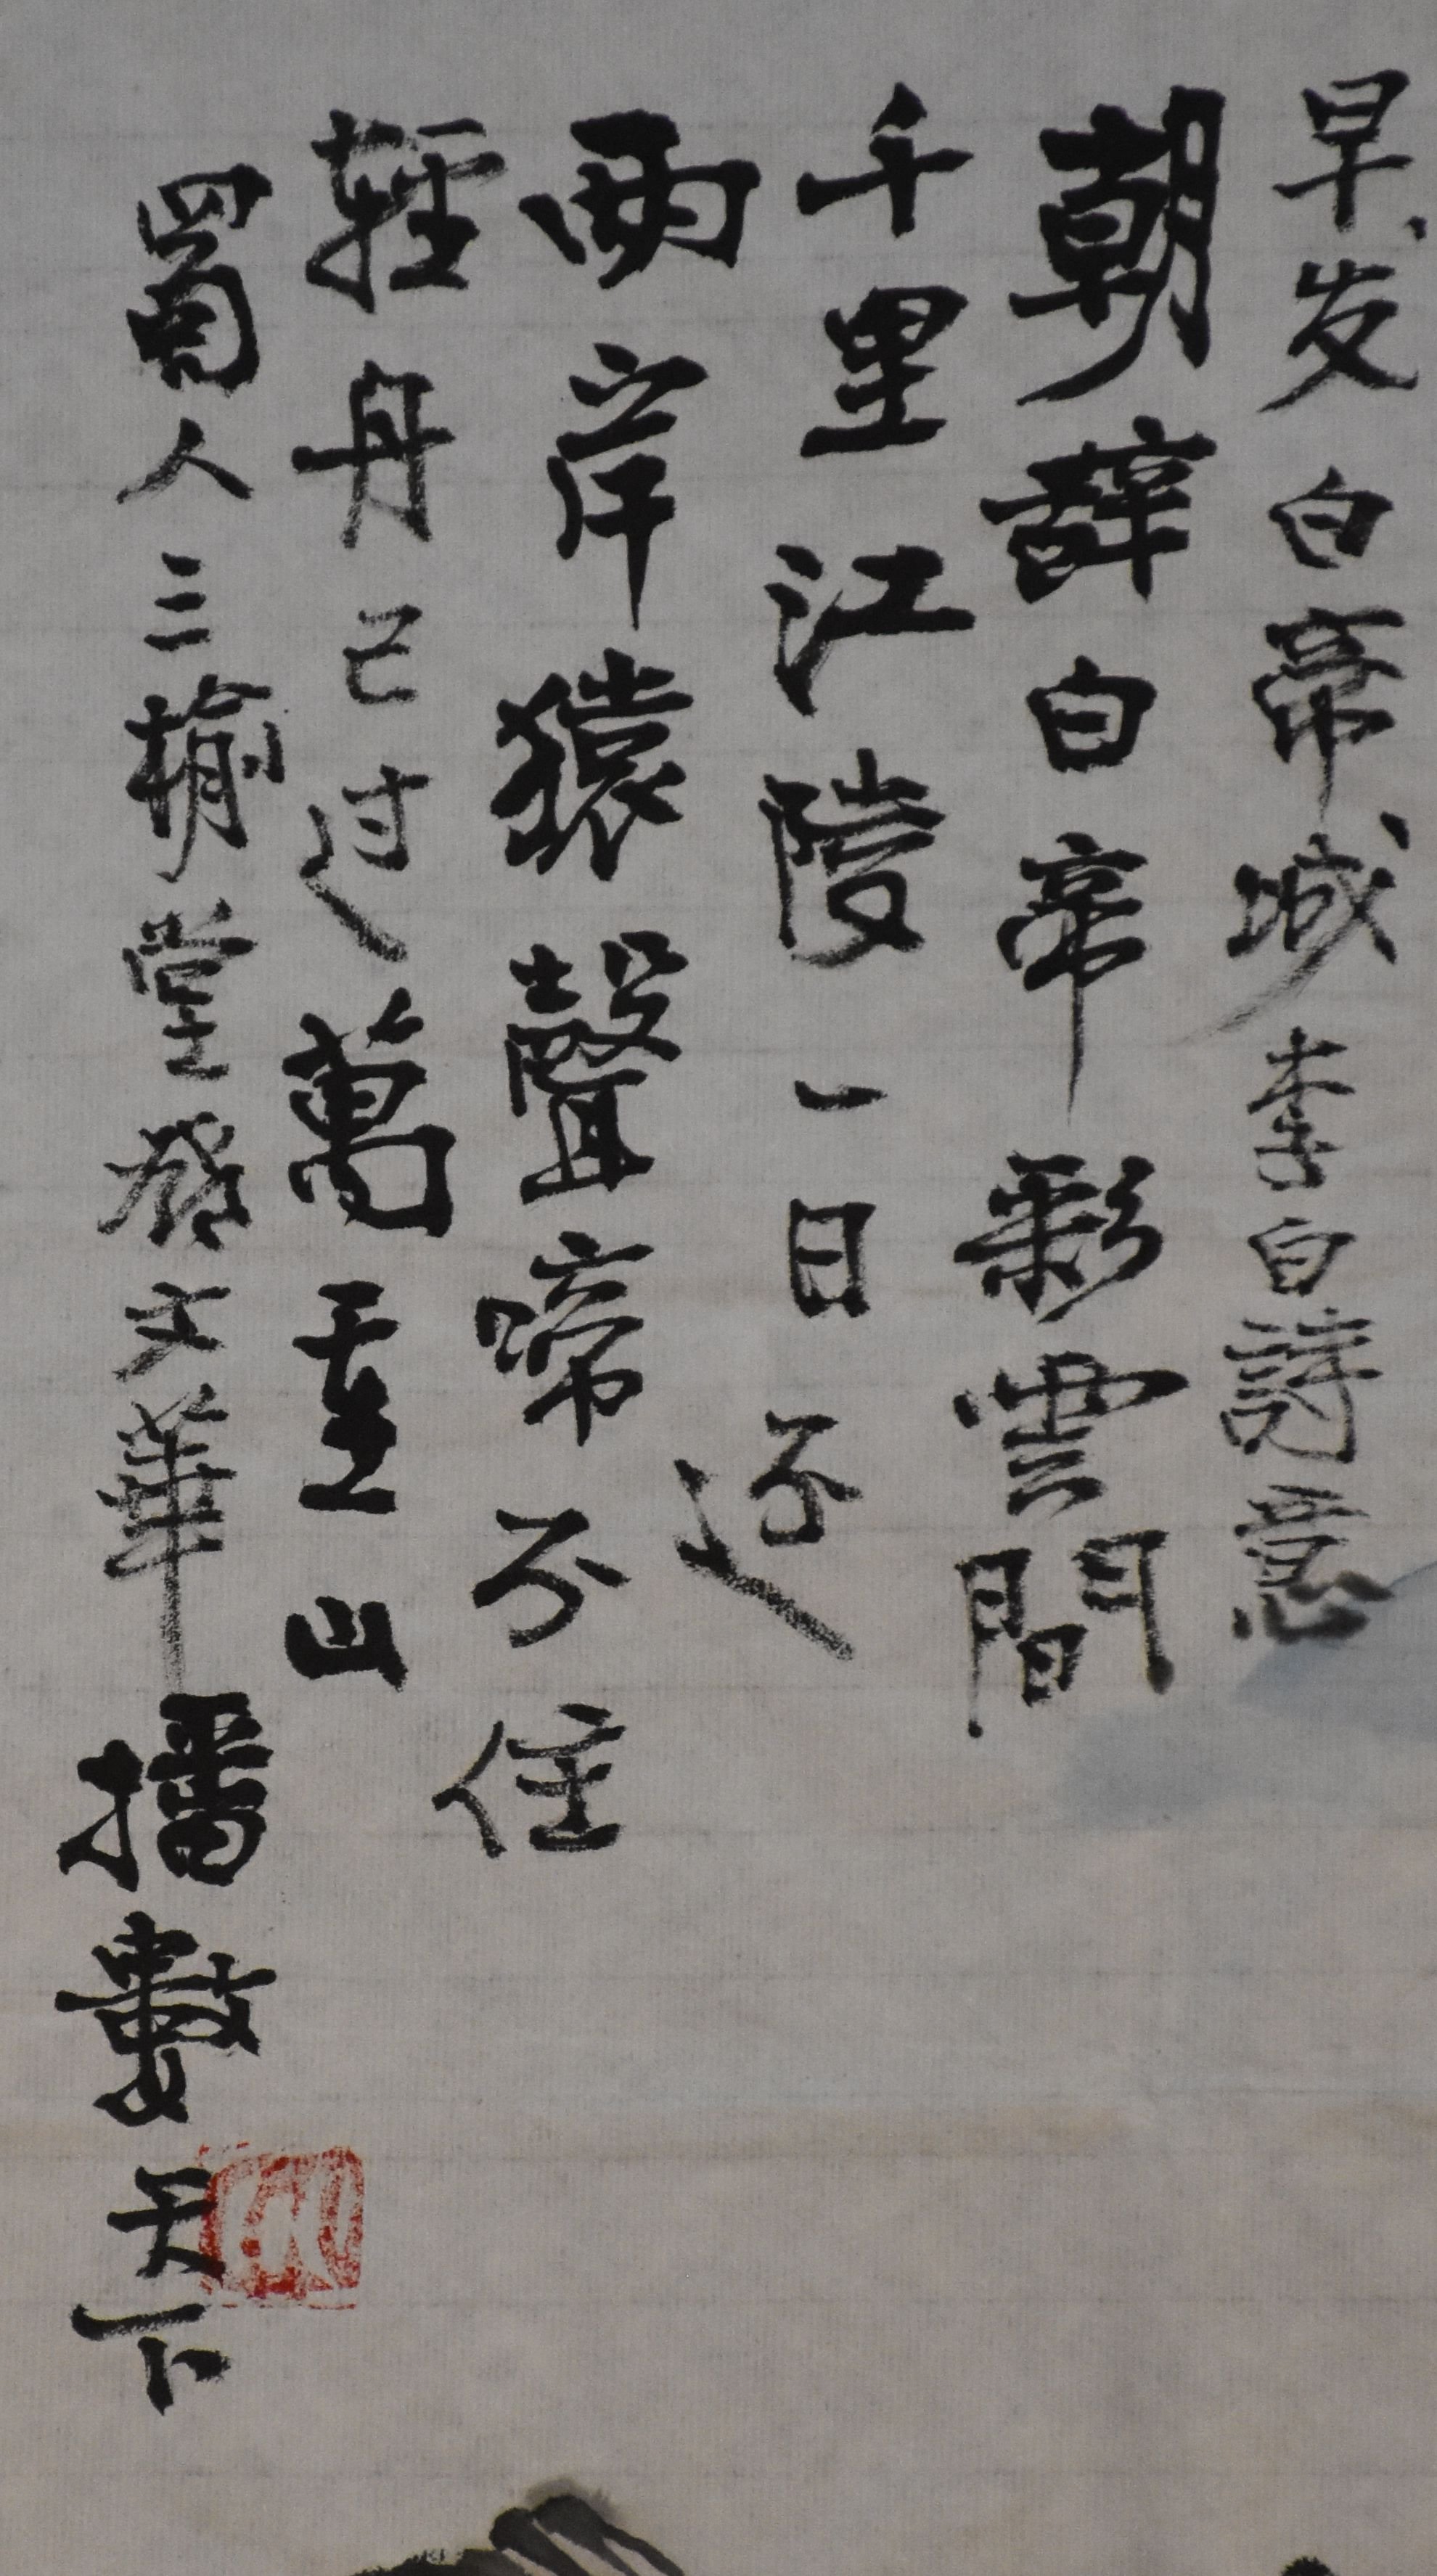 早发白帝城李白詩意
朝辭白帝彩雲間
千里江陵一日还
兩岸猿聲啼不住
輕舟已过萬重山
蜀人三榆堂發文華播數天下